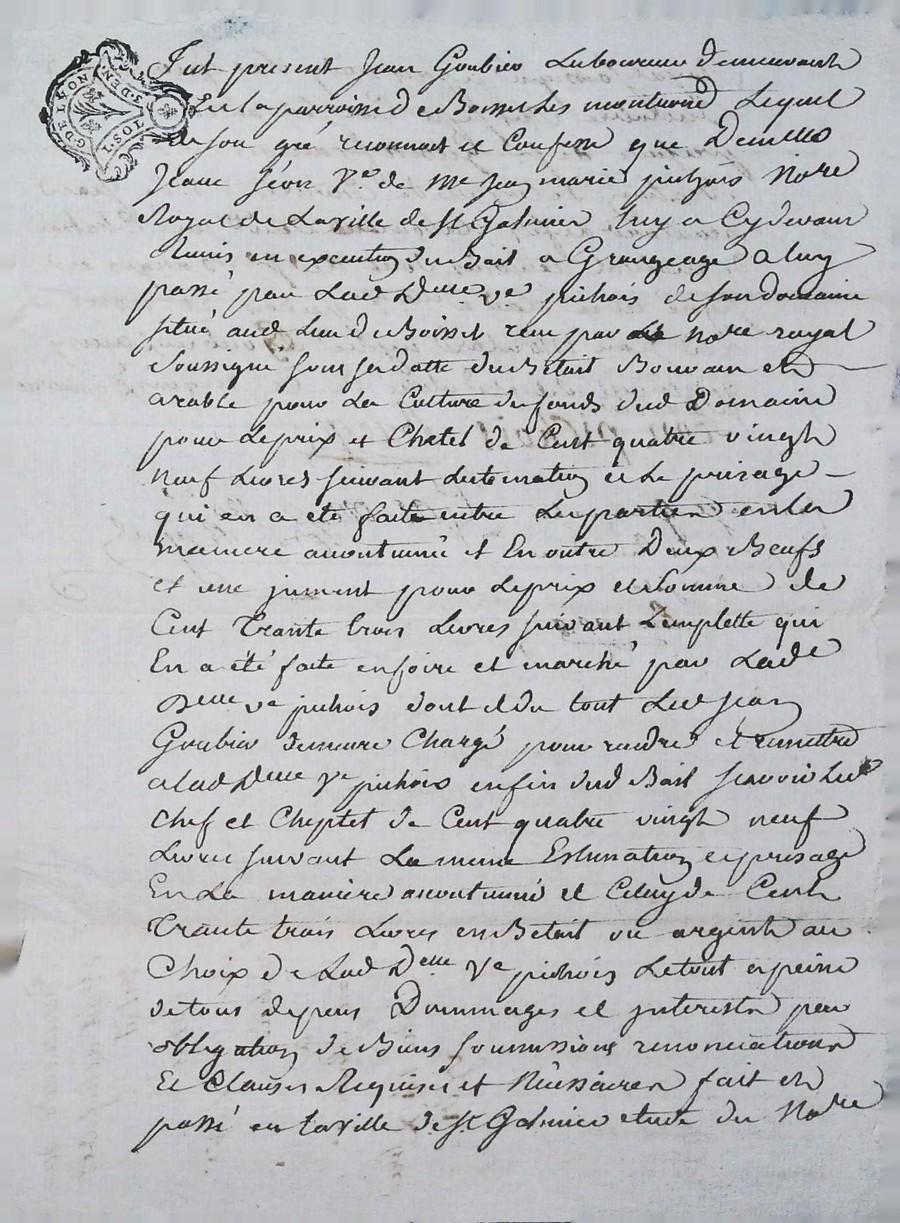 G. DE LYON
1. SOL. 3. DEN.
Fut present Jean Goubier Laboureur demeurant
En la parroisse de Boisset les montrond Lequel
de son gré reconnoit et Confesse que Demlle
Jeane Ve de Me Jean marie pichois Nore
Royal de La ville de St Galmier luy a Cy devant
Remis en execution du Bail a Grangeage a luy
passé par Lad Delle ve pichois de son domaine
situé aud Lieu de Boisset recu par le nore royal
Soussigné sous sa datte du Betail Bouvain et
arable pour La Culture du fonds dud Domaine
pour Le prix et Chetel de Cent quatre vingt
neuf Livres suivant Lestimation et Le prisage
qui en a eté faite entre Les parties en la
maniere accoutumée et En outre Deux Beufs
et une jument pour Le prix et somme de
Cent trante trois Livres suivant Lemplette qui
En a été faite en foire et marché par Lade
Delle ve pichois dont et du tout Led Jean
Goubier demeure Chargé pour randre et remettre
a lad Delle Ve pichois en fin dud Bail scavoir Led
Chef et Cheptel de Cent quatre vingt neuf
Livres suivant La meme Estimation et prisage
En La maniere accoutumée et Celuy de Cent
Trante trois Livres en Betail ou argent au
Choix de Lad Delle Ve pichois Le tout a peine
de tous depens Dommages et interests par
obligation de Biens soumissions renonciations
Et Clauses Requises et Necessaires fait et
passé en la ville de St Galmier etude du Nore